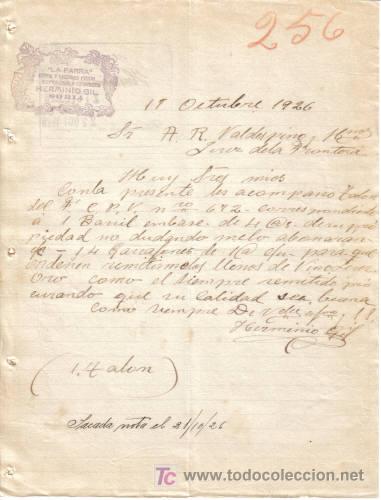 256
"LA PARRA"
HERMINIO GIL
SORIA
18 Octubre 1926
Sr A. R. Valdespino y Hermos
Jerez de la Frontera
Muy Sres mios
Con la presente les acompaño Talon
del F. C. P. V. nro 672 correspondiente
a 1 Barril embase de 4 @s de su pro
piedad no dudando me lo abonaran
y 4 Garrafones de para que
ordenen remitirmelos llenos de Vino
Oro como el siempre remitido pro
curando que su calidad sea buena
Como siempre De Vdes afmo S.S.
Herminio Gil
(1 Talon)
Sacada nota el 21/10/26
TC www.todocoleccion.net